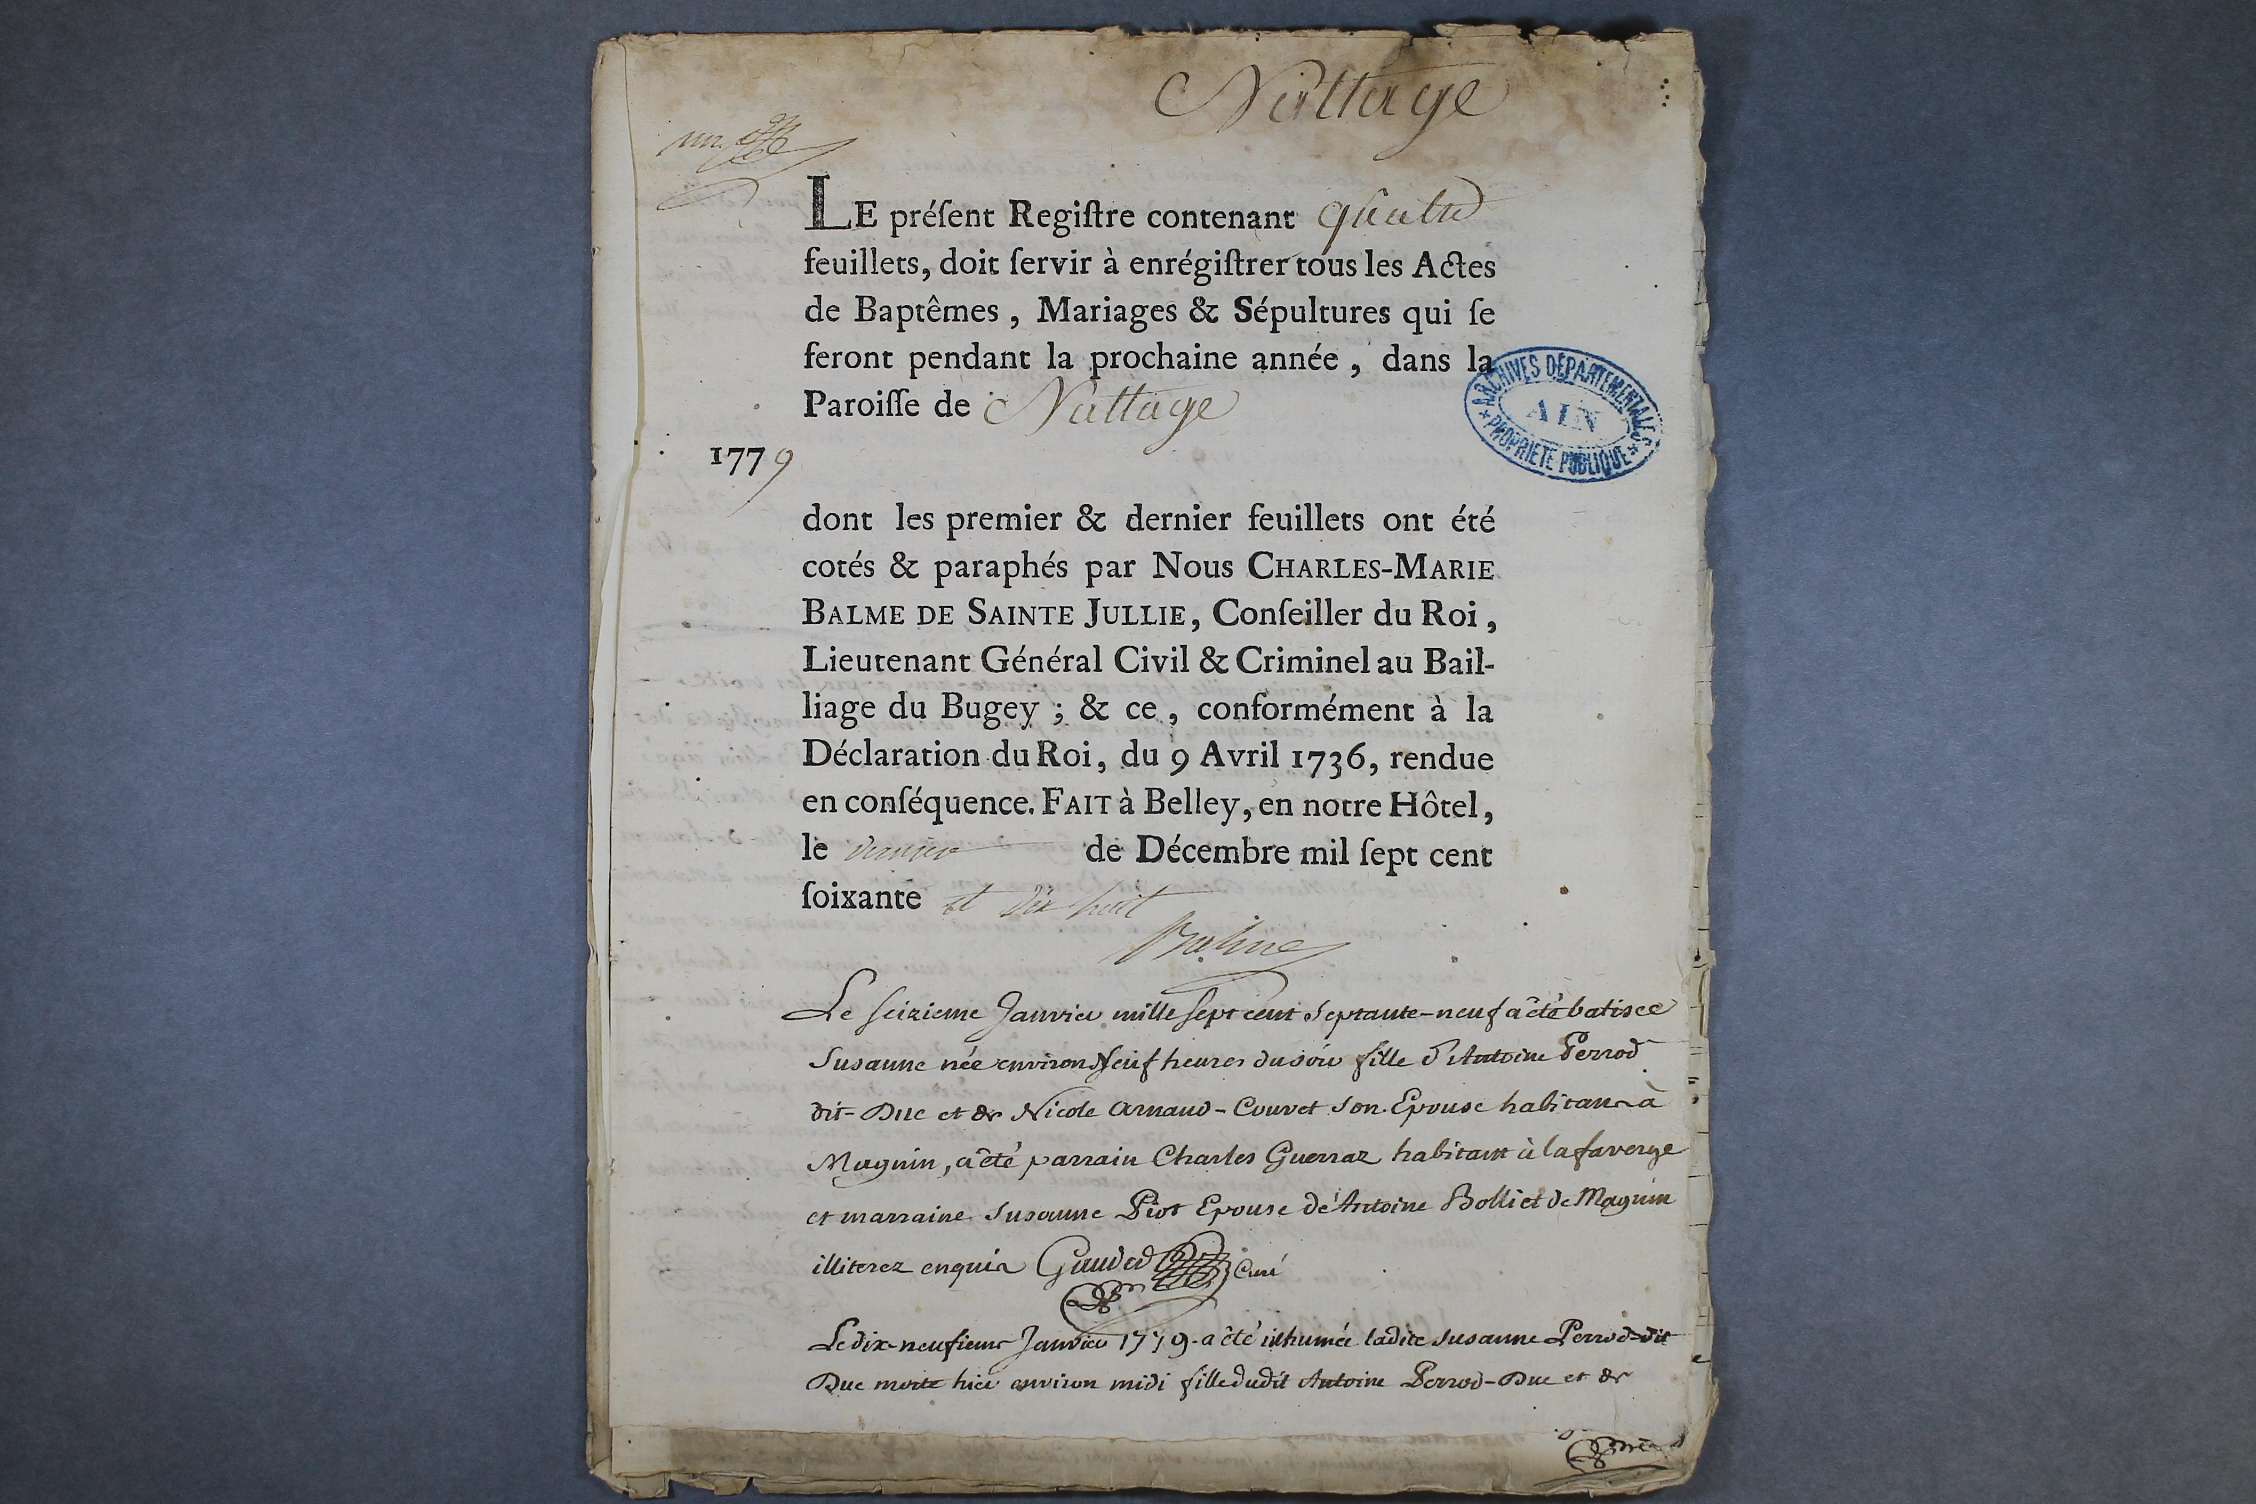 Nattage
un.
LE préſent Regiſtre contenant quatre
feuillets, doit ſervir à enrégiſtrer tous les Actes
de Baptêmes, Mariages & Sépultures qui ſe
feront pendant la prochaine année, dans la
Paroiſſe de Nattage
ARCHIVES DÉPARTEMENTALES
AIN
PROPRIÉTÉ PUBLIQUE
1779
dont les premier & dernier feuillets ont été
cotés & paraphés par Nous CHARLES-MARIE
BALME DE SAINTE JULLIE, Conſeiller du Roi,
Lieutenant Général Civil & Criminel au Bail-
liage du Bugey ; & ce, conformément à la
Déclaration du Roi, du 9 Avril 1736, rendue
en conſéquence. FAIT à Belley, en notre Hôtel,
le dernier de Décembre mil ſept cent
ſoixante et dix huit
Balme
Le seizieme Janvier mille sept cent septante-neuf a été batisee
Susanne née environ Neuf heures du soir fille d'Antoine Perrod
dit-Duc et de Nicole Arnaud-Couvet son Epouse habitans à
Magnin, a été parrain Charles Guerraz habitant à la faverge
et marraine Susanne Piot Epouse de Antoine Bolliet de Magnin
illiterez enquis Curé
Le dix-neufieme Janvier 1779 a été inhumée ladite Susanne Perrod-dit
Duc morte hier environ midi fille dudit Antoine Perrod-Duc et de